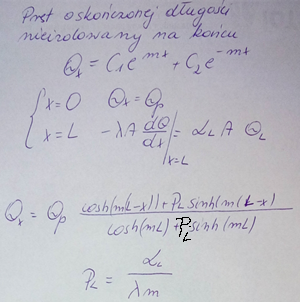 Pręt o skończonej długości
nieizolowany na końcu
Θx = C1e^mx + C2e^-mx
{ x=0 Θx = Θp
x=L -λA dΘ/dx |x=L = αL A ΘL
Θx = Θp (cosh(m(L-x)) + PL sinh(m(L-x)) / (cosh(mL) + PL sinh(mL)
PL = αL / λm